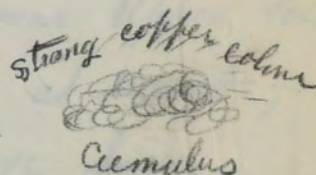 strong copper colour
Cumulus